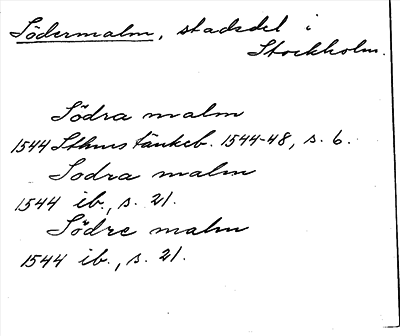 Södermalm, stadsdel i
Stockholm.
Södra malm
1544 Sthms tänkeb. 1544-48, s. 6.
Sodra malm
1544 ib., s. 21.
Södre malm
1544 ib., s. 21.